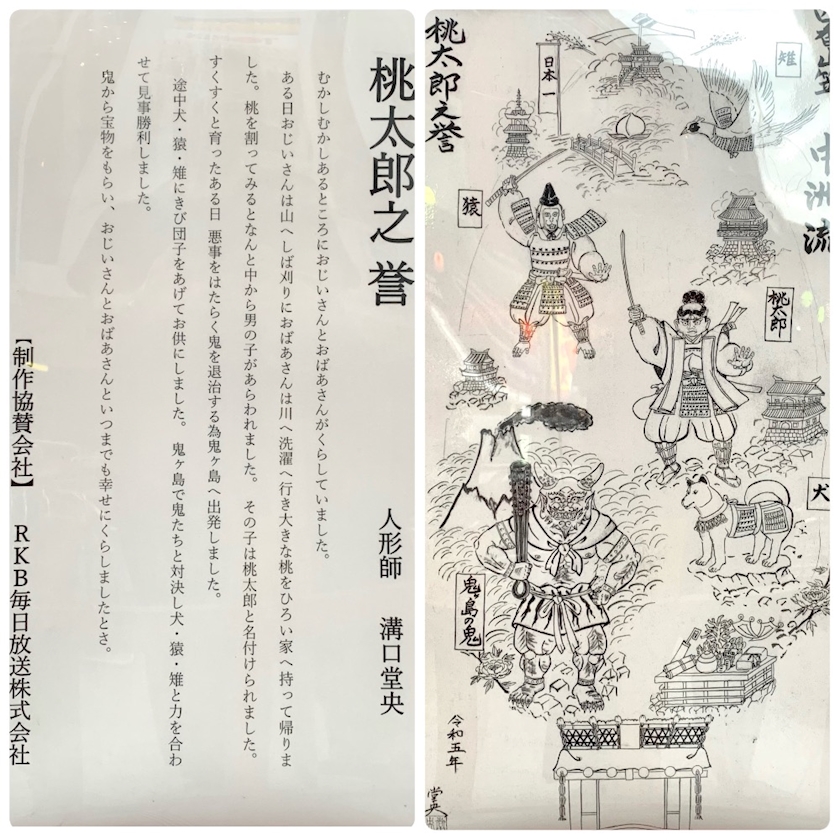 桃太郎之 誉
人形師 溝口堂央
むかしむかしあるところにおじいさんとおばあさんがくらしていました。
ある日おじいさんは山へしば刈りにおばあさんは川へ洗濯へ行き大きな桃をひろい家へ持って帰りま
した。桃を割ってみるとなんと中から男の子があらわれました。 その子は桃太郎と名付けられました。
すくすくと育ったある日 悪事をはたらく鬼を退治する為鬼ヶ島へ出発しました。
途中犬・猿・雉にきび団子をあげてお供にしました。 鬼ヶ島で鬼たちと対決し犬・猿・雉と力を合わ
せて見事勝利しました。
鬼から宝物をもらい、おじいさんとおばあさんといつまでも幸せにくらしましたとさ。
【制作協賛会社】 RKB毎日放送株式会社
中洲流
雉
桃太郎之誉
日本一
猿
桃太郎
犬
鬼ヶ島の鬼
令和五年
堂央